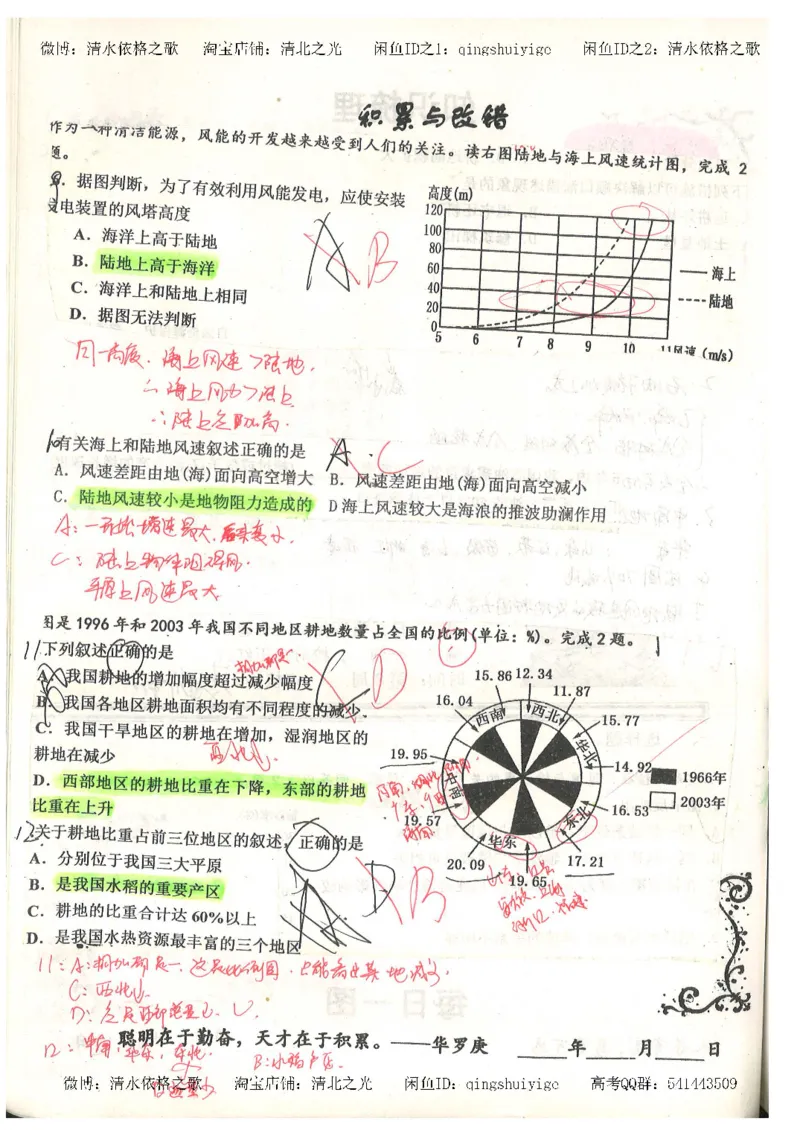 微博：清水依格之歌 淘宝店铺：清北之光 闲鱼ID之1：qingshuiyige 闲鱼ID之2：清水依格之歌
积累与改错
作为一种清洁能源，风能的开发越来越受到人们的关注。读右图陆地与海上风速统计图，完成 2
题。
9．据图判断，为了有效利用风能发电，应使安装
发电装置的风塔高度
A．海洋上高于陆地
B．陆地上高于海洋
C．海洋上和陆地上相同
D．据图无法判断
A B
高度(m)
120
100
80
60
40
20
0
5 6 7 8 9 10 11风速 (m/s)
海上
陆地
同一高度．海上风速>陆地．
∴海上风力>陆上
∴陆上建立高．
10有关海上和陆地风速叙述正确的是 A． C
A．风速差距由地(海)面向高空增大 B．风速差距由地(海)面向高空减小
C．陆地风速较小是地物阻力造成的 D海上风速较大是海浪的推波助澜作用
图是 1996 年和 2003 年我国不同地区耕地数量占全国的比例(单位：%)。完成 2 题。
11下列叙述正确的是 C D
A．我国耕地的增加幅度超过减少幅度
B．我国各地区耕地面积均有不同程度的减少．
C．我国干旱地区的耕地在增加，湿润地区的
耕地在减少
D．西部地区的耕地比重在下降，东部的耕地
比重在上升
15.86 12.34
16.04 11.87
西南 西北 15.77
华北
19.95 14.92
中南
19.57 16.53
东北
华东
20.09 17.21
19.65
1966年
2003年
12关于耕地比重占前三位地区的叙述，正确的是
A．分别位于我国三大平原
B．是我国水稻的重要产区
C．耕地的比重合计达 60%以上
D．是我国水热资源最丰富的三个地区
D B
聪明在于勤奋，天才在于积累。——华罗庚 年 月 日
微博：清水依格之歌 淘宝店铺：清北之光 闲鱼ID：qingshuiyige 高考QQ群：541443509